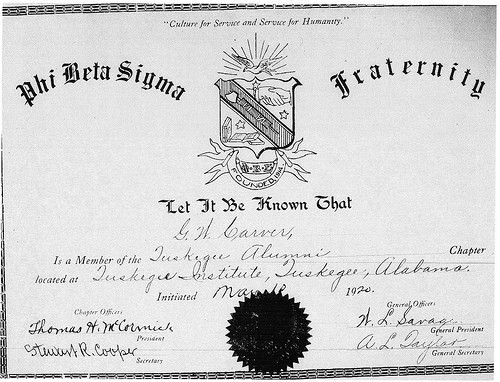 "Culture for Service and Service for Humanity."
Phi Beta Sigma Fraternity
ΦΒΣ
FOUNDED 1914
Let It Be Known That
G. W. Carver,
Is a Member of the Tuskegee Alumni Chapter
located at Tuskegee Institute, Tuskegee, Alabama.
Initiated May 1920.
Chapter Officers
General Officers
Thomas H. McCormick
President
W. L. Savage
General President
Stewart R. Cooper
Secretary
A. L. Taylor
General Secretary